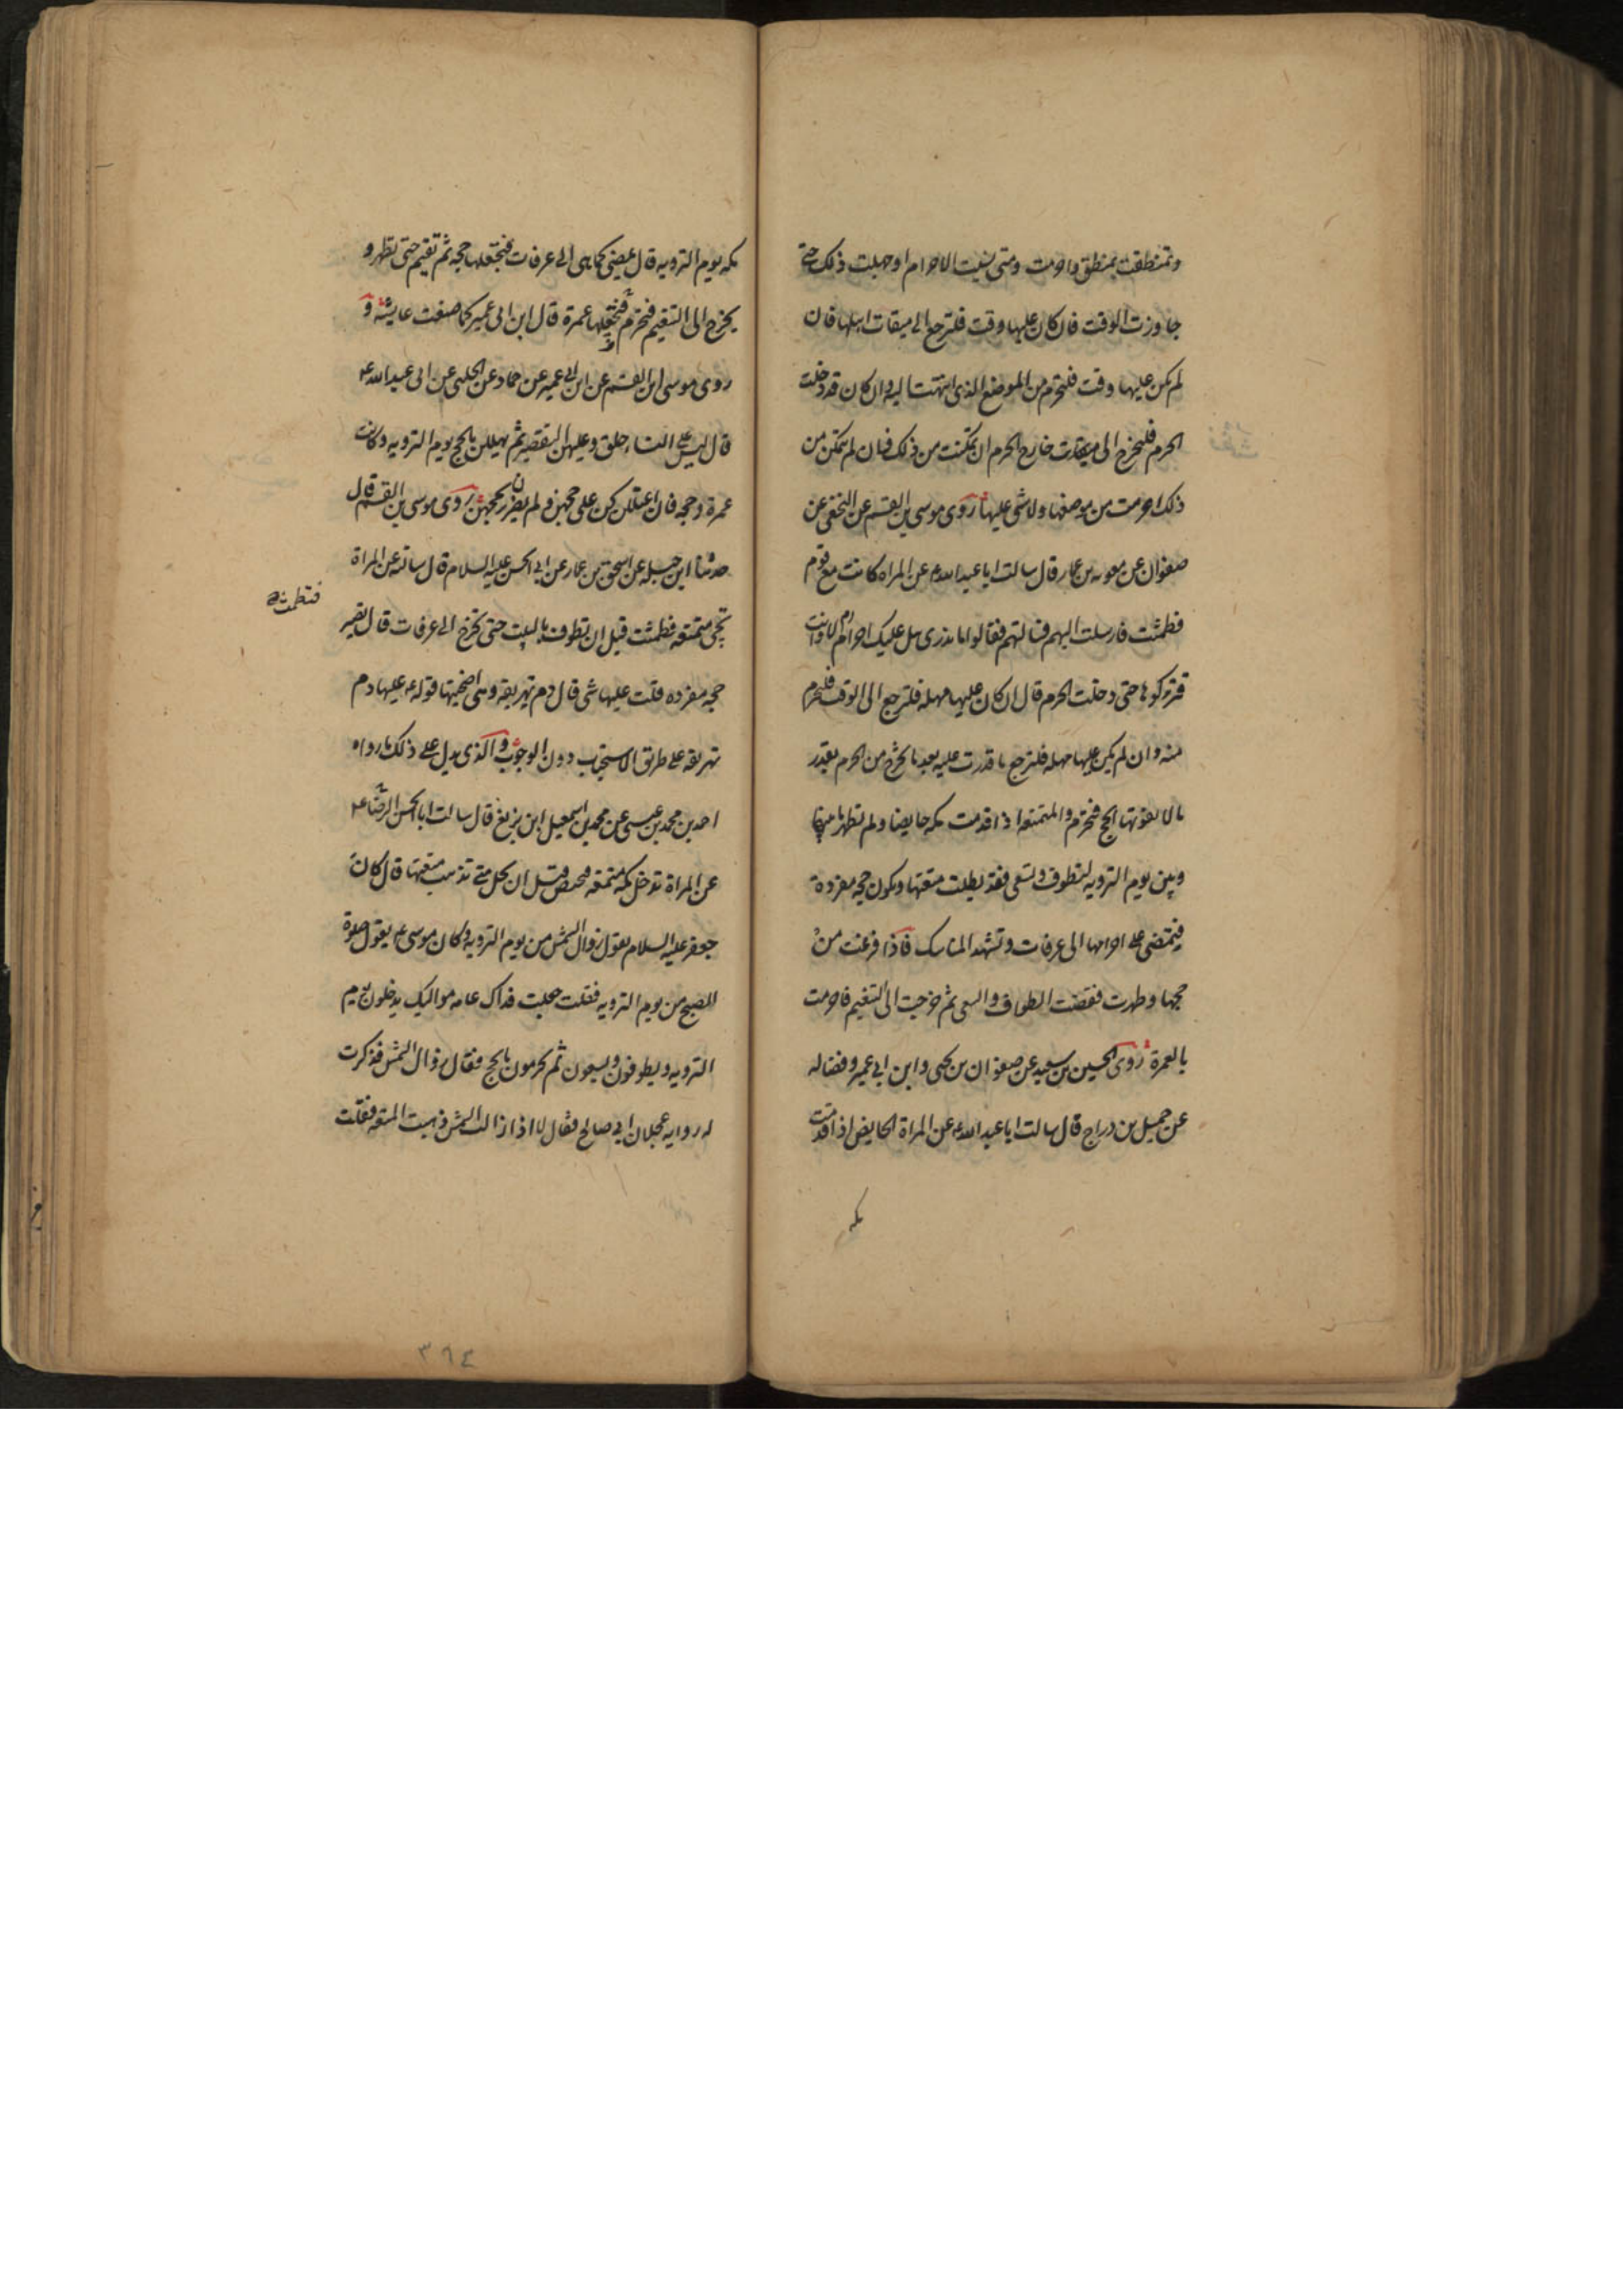 وتمنطقت بمنطق واحرمت ومتى نسيت الاحرام او جهلت ذلك حتى
جاوزت الوقت فان كان عليها وقت فلترجع الى ميقات اهلها فان
لم يكن عليها وقت فلتحرم من الموضع الذى انتهت اليه وان كان قد دخلت
الحرم فليخرج الى ميقات خارج الحرم ان تمكنت من ذلك فان لم تتمكن من
ذلك احرمت من موضعها ولا شى عليها روى موسى بن القسم عن النخعى عن
صفوان عن معويه بن عمار قال سالت ابا عبد الله ع عن المراه كانت مع قوم
فطمثت فارسلت اليهم فسالتهم فقالوا ما ندرى هل عليك احرام ام لا وانت
فتركوها حتى دخلت الحرم قال ان كان عليها مهله فلترجع الى الوقت فلتحرم
منه وان لم يكن عليها مهله فلترجع ما قدرت عليه بعد ما تخرج من الحرم بقدر
ما لا يفوتها الحج فتحرم والمتمتعه اذا قدمت مكه حايضا ولم تطهر ما بينها
وبين يوم الترويه لتطوف وتسعى فقد بطلت متعتها ويكون حجه مفردة
فتمضى على احرامها الى عرفات وتشهد المناسك فاذا فرغت من
حجها وطهرت فقضت الطواف والسعى ثم خرجت الى التنعيم فاحرمت
بالعمرة روى الحسين بن سعيد عن صفوان بن يحيى وابن ابى عمير وفضاله
عن جميل بن دراج قال سالت ابا عبد الله ع عن المراة الحايض اذا قدمت
مكه
مكه يوم الترويه قال تمضى كما هى الى عرفات فتجعلها حجه ثم تقيم حتى تطهر و
يخرج الى التنعيم فتحرم فتجعلها عمرة قال ابن ابى عمير كما صنعت عايشه و
روى موسى ابن القسم عن ابن ابى عمير عن حماد عن الحلبى عن ابى عبد الله ع
قال ليس على النساء حلق وعليهن التقصير ثم يهللن بالحج يوم الترويه وكانت
عمرة وحجه فان اعتللن كن على حجهن ولم يضررن بحجهن روى موسى بن القسم قال
حدثنا ابن جبله عن اسحق بن عمار عن ابى الحسن عليه السلام قال سالته عن المراة
تجى متمتعه فطمثت قبل ان تطوف بالبيت حتى تخرج الى عرفات قال تصير
فتطمث
حجه مفرده قلت عليها شى قال دم تهريقه وهى اضحيتها قوله ع عليها دم
تهريقه على طريق الاستحباب دون الوجوب والذى يدل على ذلك ما رواه
احمد بن محمد بن عيسى عن محمد بن اسمعيل ابن بزيع قال سالت ابا الحسن الرضا ع
عن المراة تدخل مكه متمتعه فتحيض قبل ان تحل متى تذهب متعتها قال كان
جعفر عليه السلام يقول زوال الشمس من يوم الترويه وكان موسى ع يقول صلوة
الصبح من يوم الترويه فقلت جعلت فداك عامه مواليك يدخلون يوم
الترويه ويطوفون ويسعون ثم يحرمون بالحج فقال زوال الشمس فذكرت
له روايه عجلان ابى صالح فقال لا اذا زالت الشمس ذهبت المتعه فقلت
٣٦٤